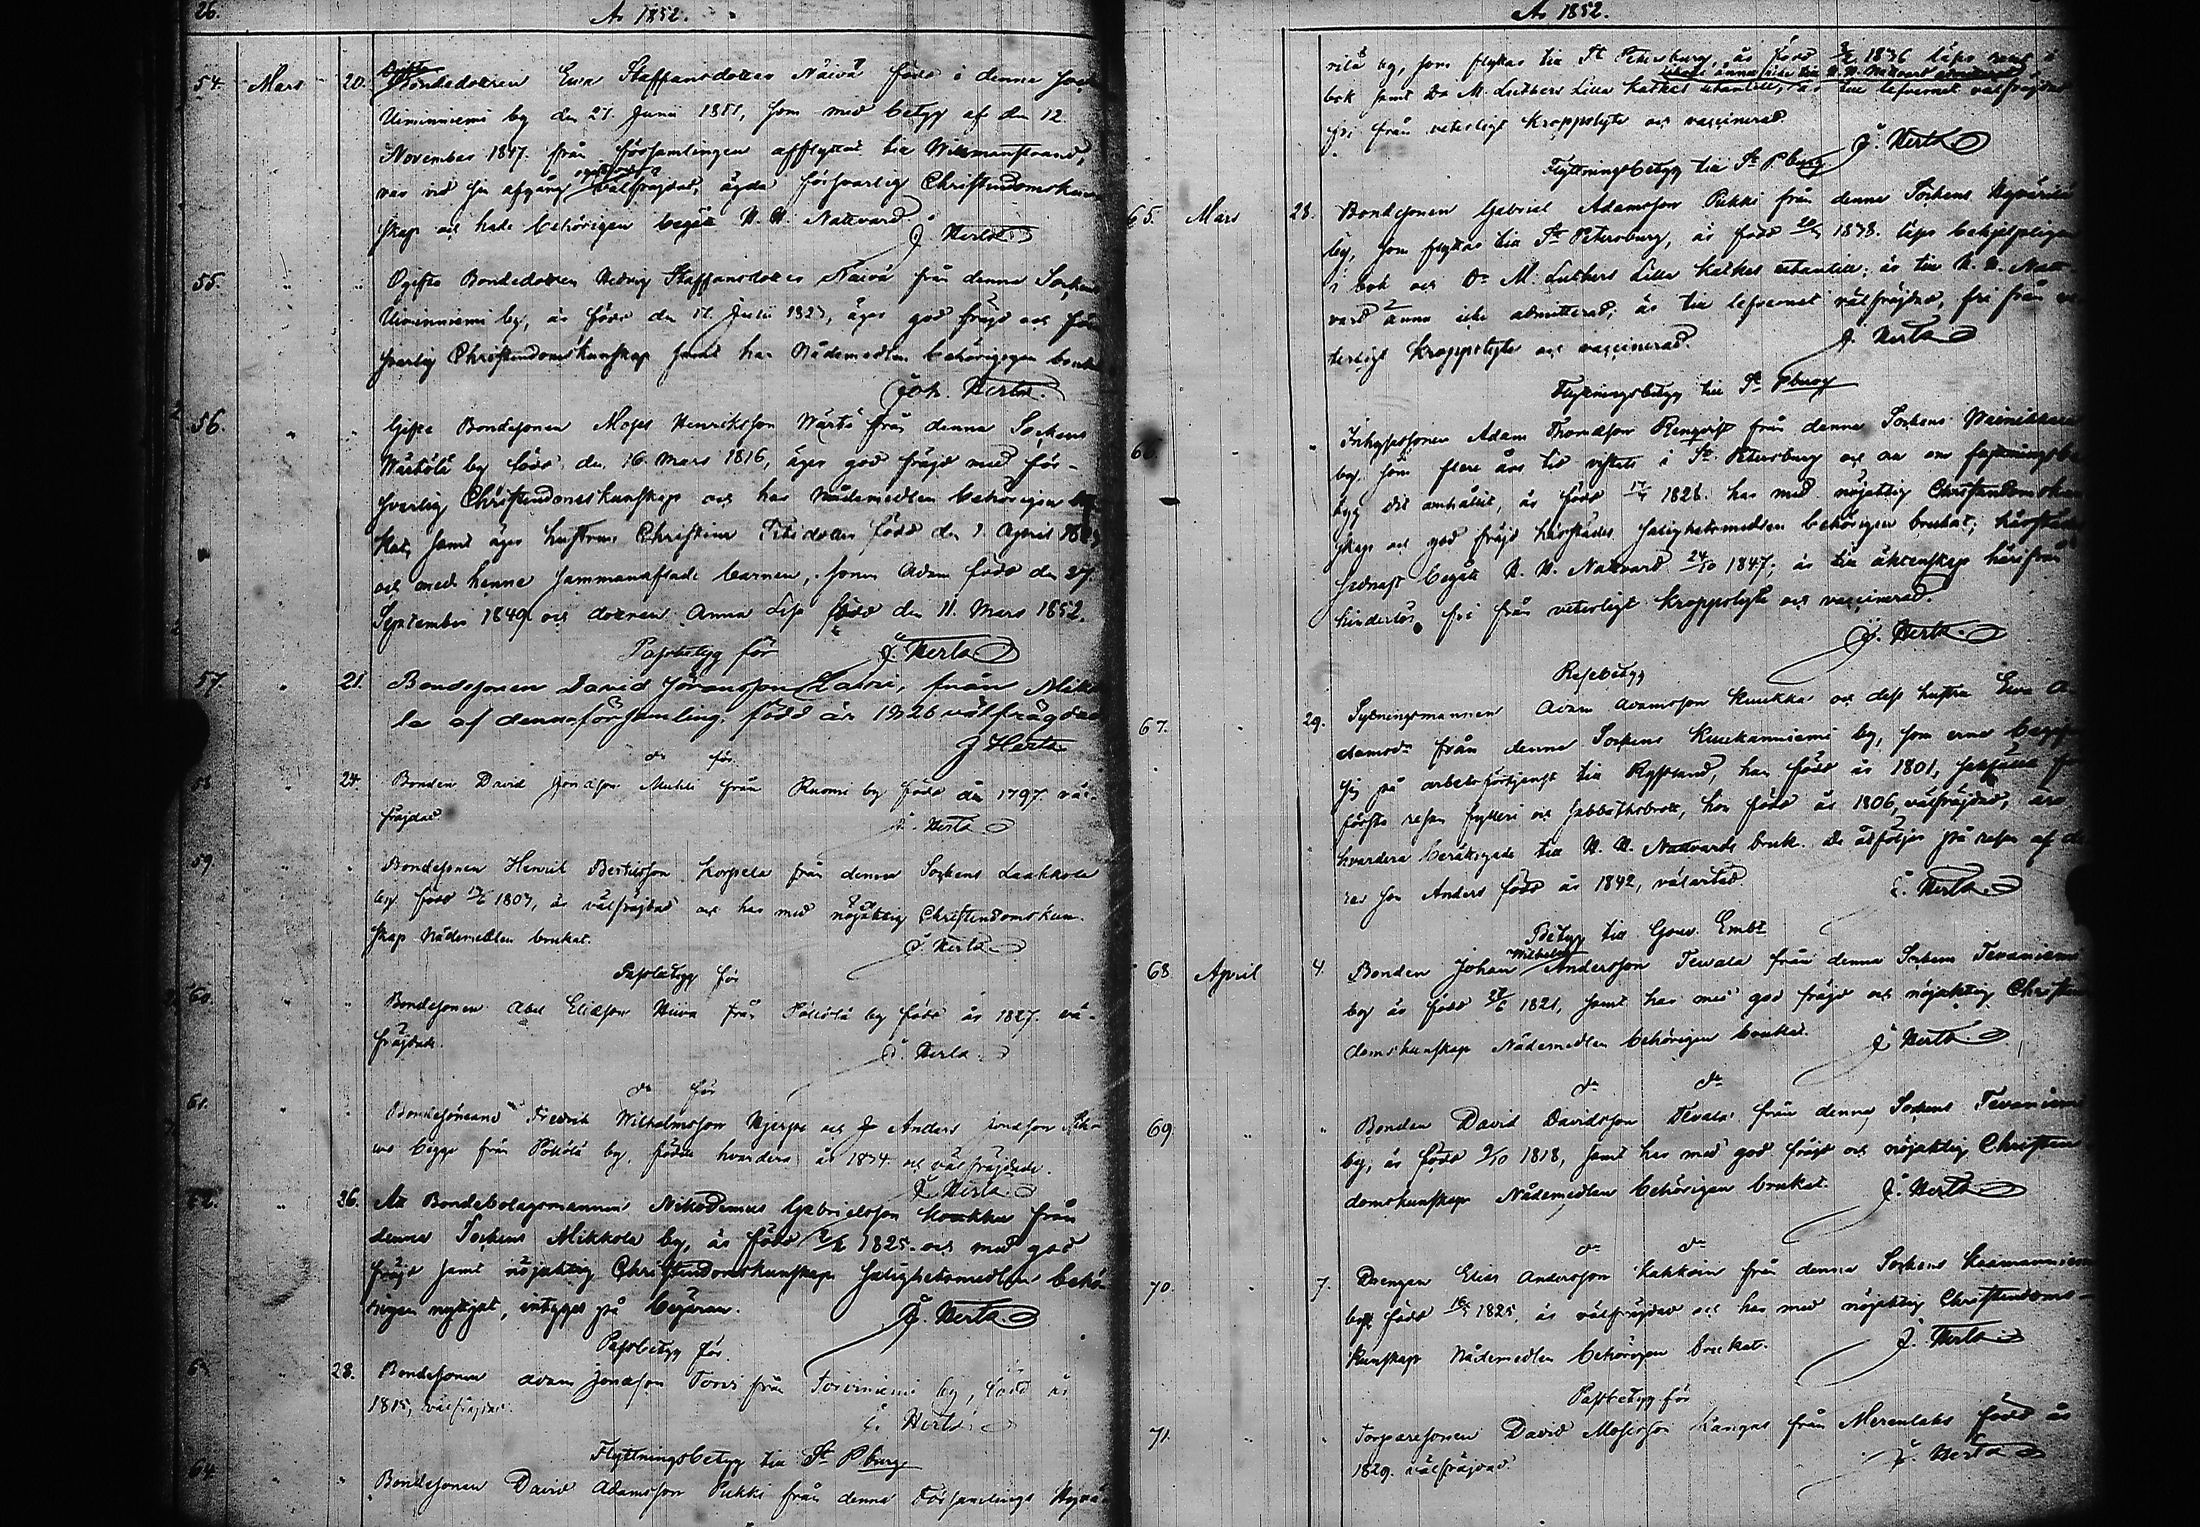 26.
Aº 1852.
54. Mars 20. Bondedottren Ewa Staffansdotter Näivä född i denna
Uiminniemi by den 21 Junii 1811, som med betyg af den 12
November 1847 från församlingen afflyttat till Wilmanstrand,
var vid sin afgång välfrejdad, ägde försvarlig Christendomskun
skap och hade behörigen begått H. H. Nattvard J. Herta
55. Ogifta Bondedottren Hedvig Staffansdotter Näivä från denna Sockens
Uiminniemi by, är född den 17 Julii 1823, äger god frejd och för
svarlig Christendomskunskap samt har Nådemedlen behörigen
Joh. Herta
56. Gifte Bondesonen Moses Henriksson Wärtö från denna Sockens
by född den 16 Mars 1816, äger god frejd med för-
svarlig Christendomskunskap och har Nådemedlen behörigen
kat, samt äger hustrun Christina född den 9 April
och med henne sammanaflade barnen, sonen Adam född den 27
September 1849 och dottren Anna Lisa född den 11 Mars 1852.
Passbetyg för J. Herta
57. 21. Bondesonen David Jöransson Lauri, från Mikko
la af denna församling, född år 1826 välfrägdad
J Herta
do för
58 24. Bonden David Jonasson från Ruomi by född år 1797. väl-
frajdad J. Herta
59 Bondesonen Henrik Bertilsson Korpela från denna Sockens Laakkola
by född 1803, är välfrajdad och har med nöjaktig Christendomskun
skap Nådemedlen brukat. J. Herta
Passbetyg för
60. Bondesonen Abel Eliasson från Pöllölä by född år 1827. väl-
frajdade. J. Herta
do för
61. Bondesönerna Fredrik Wilhelmsson och Anders Jonasson
begge från Pöllölä by, födde hvardera år 1834 och välfrajdade.
J. Herta
62. 26. Att Bondebolagsmannen Nikodemus Gabrielsson från
denna Sockens Mikkola by, är född 1825 och med god
frajd samt nöjaktig Christendomskunskap salighetsmedlen behö
rigen nyttjat, intygas på begäran. J. Herta
Passbetyg för
28. Bondesonen Adam Jonasson Torvi från Toiviniemi by, född år
1815, välfrajdad. J. Herta
Flyttningsbetyg till St Pburg
64 Bondesonen David Adamsson Pukki från denna Församlings
Aº 1852.
by, som flyttar till St Petersburg, är född 1836 läser
bok samt Dr M. Luthers Lilla Katkes utantill, är till lefvernet välfrajdad
fri från veterligt kroppslyte och vaccinerad.
J. Herta
Flyttningsbetyg till St Pburg
65. Mars 28. Bondesonen Gabriel Adamsson Pukki från denna Sockens
by, som flyttar till St Petersburg, är född 1838. läser behjelpligen
i bok och Dr M. Luthers Lilla Katkes utantill; är till H. H. Natt-
vard ännu icke admitterad; är till lefvernet välfrajdad, fri från ve
terligt kroppslyte och vaccinerad
J. Herta
Flyttningsbetyg till St Pburg
66. Inhysessonen Adam Thomasson Renqvist från denna Sockens
by, som flere års tid vistats i St Petersburg och nu om
tyg dit anhållit, är född 1828. har med nöjaktig Christendomskun
skap och god frajd härstädes salighetsmedlen behörigen brukat; härstädes
sednast begått H. H. Nattvard 24/10 1847; är till äktenskap härifrån
hinderlös, fri från veterligt kroppslyte och vaccinerad.
J. Herta
Resebetyg
67. 29. Sytningsmannen Adam Adamsson Kuukka och dess hustru Ewa A
damsdr från denna Sockens Kuukanniemi by, som
sig på arbetsförtjenst till Ryssland, han född år 1801,
första resan fylleri och sabbathsbrott, hon född år 1806, välfrajdad, äro
hvardera berättigade till H. H. Nattvards bruk. De åtföljes på resan af de
ras son Anders född år 1842, välartad. J. Herta
Betyg till Gouv. Embt
68. April 4. Bonden Johan Wilhelm Andersson Tewala från denna Sockens Tevaniemi
by är född 1821, samt har med god frajd och nöjaktig Christen
domskunskap Nådemedlen behörigen brukat. J. Herta
do do
69 Bonden David Davidsson Tevala från denna Sockens Tevaniemi
by, är född 9/10 1818, samt har med god frajd och nöjaktig Christen
domskunskap Nådemedlen behörigen brukat. J. Herta
do do
70. 7. Drengen Elias Andersson Kakkoin från denna Sockens
by född 1825, är välfrajdad och har med nöjaktig Christendoms-
kunskap Nådemedlen behörigen brukat. J. Herta
Passbetyg för
71. Torparesonen David Mosesson Kangas från Merenlaks född år
1829. välfrajdad. J. Herta